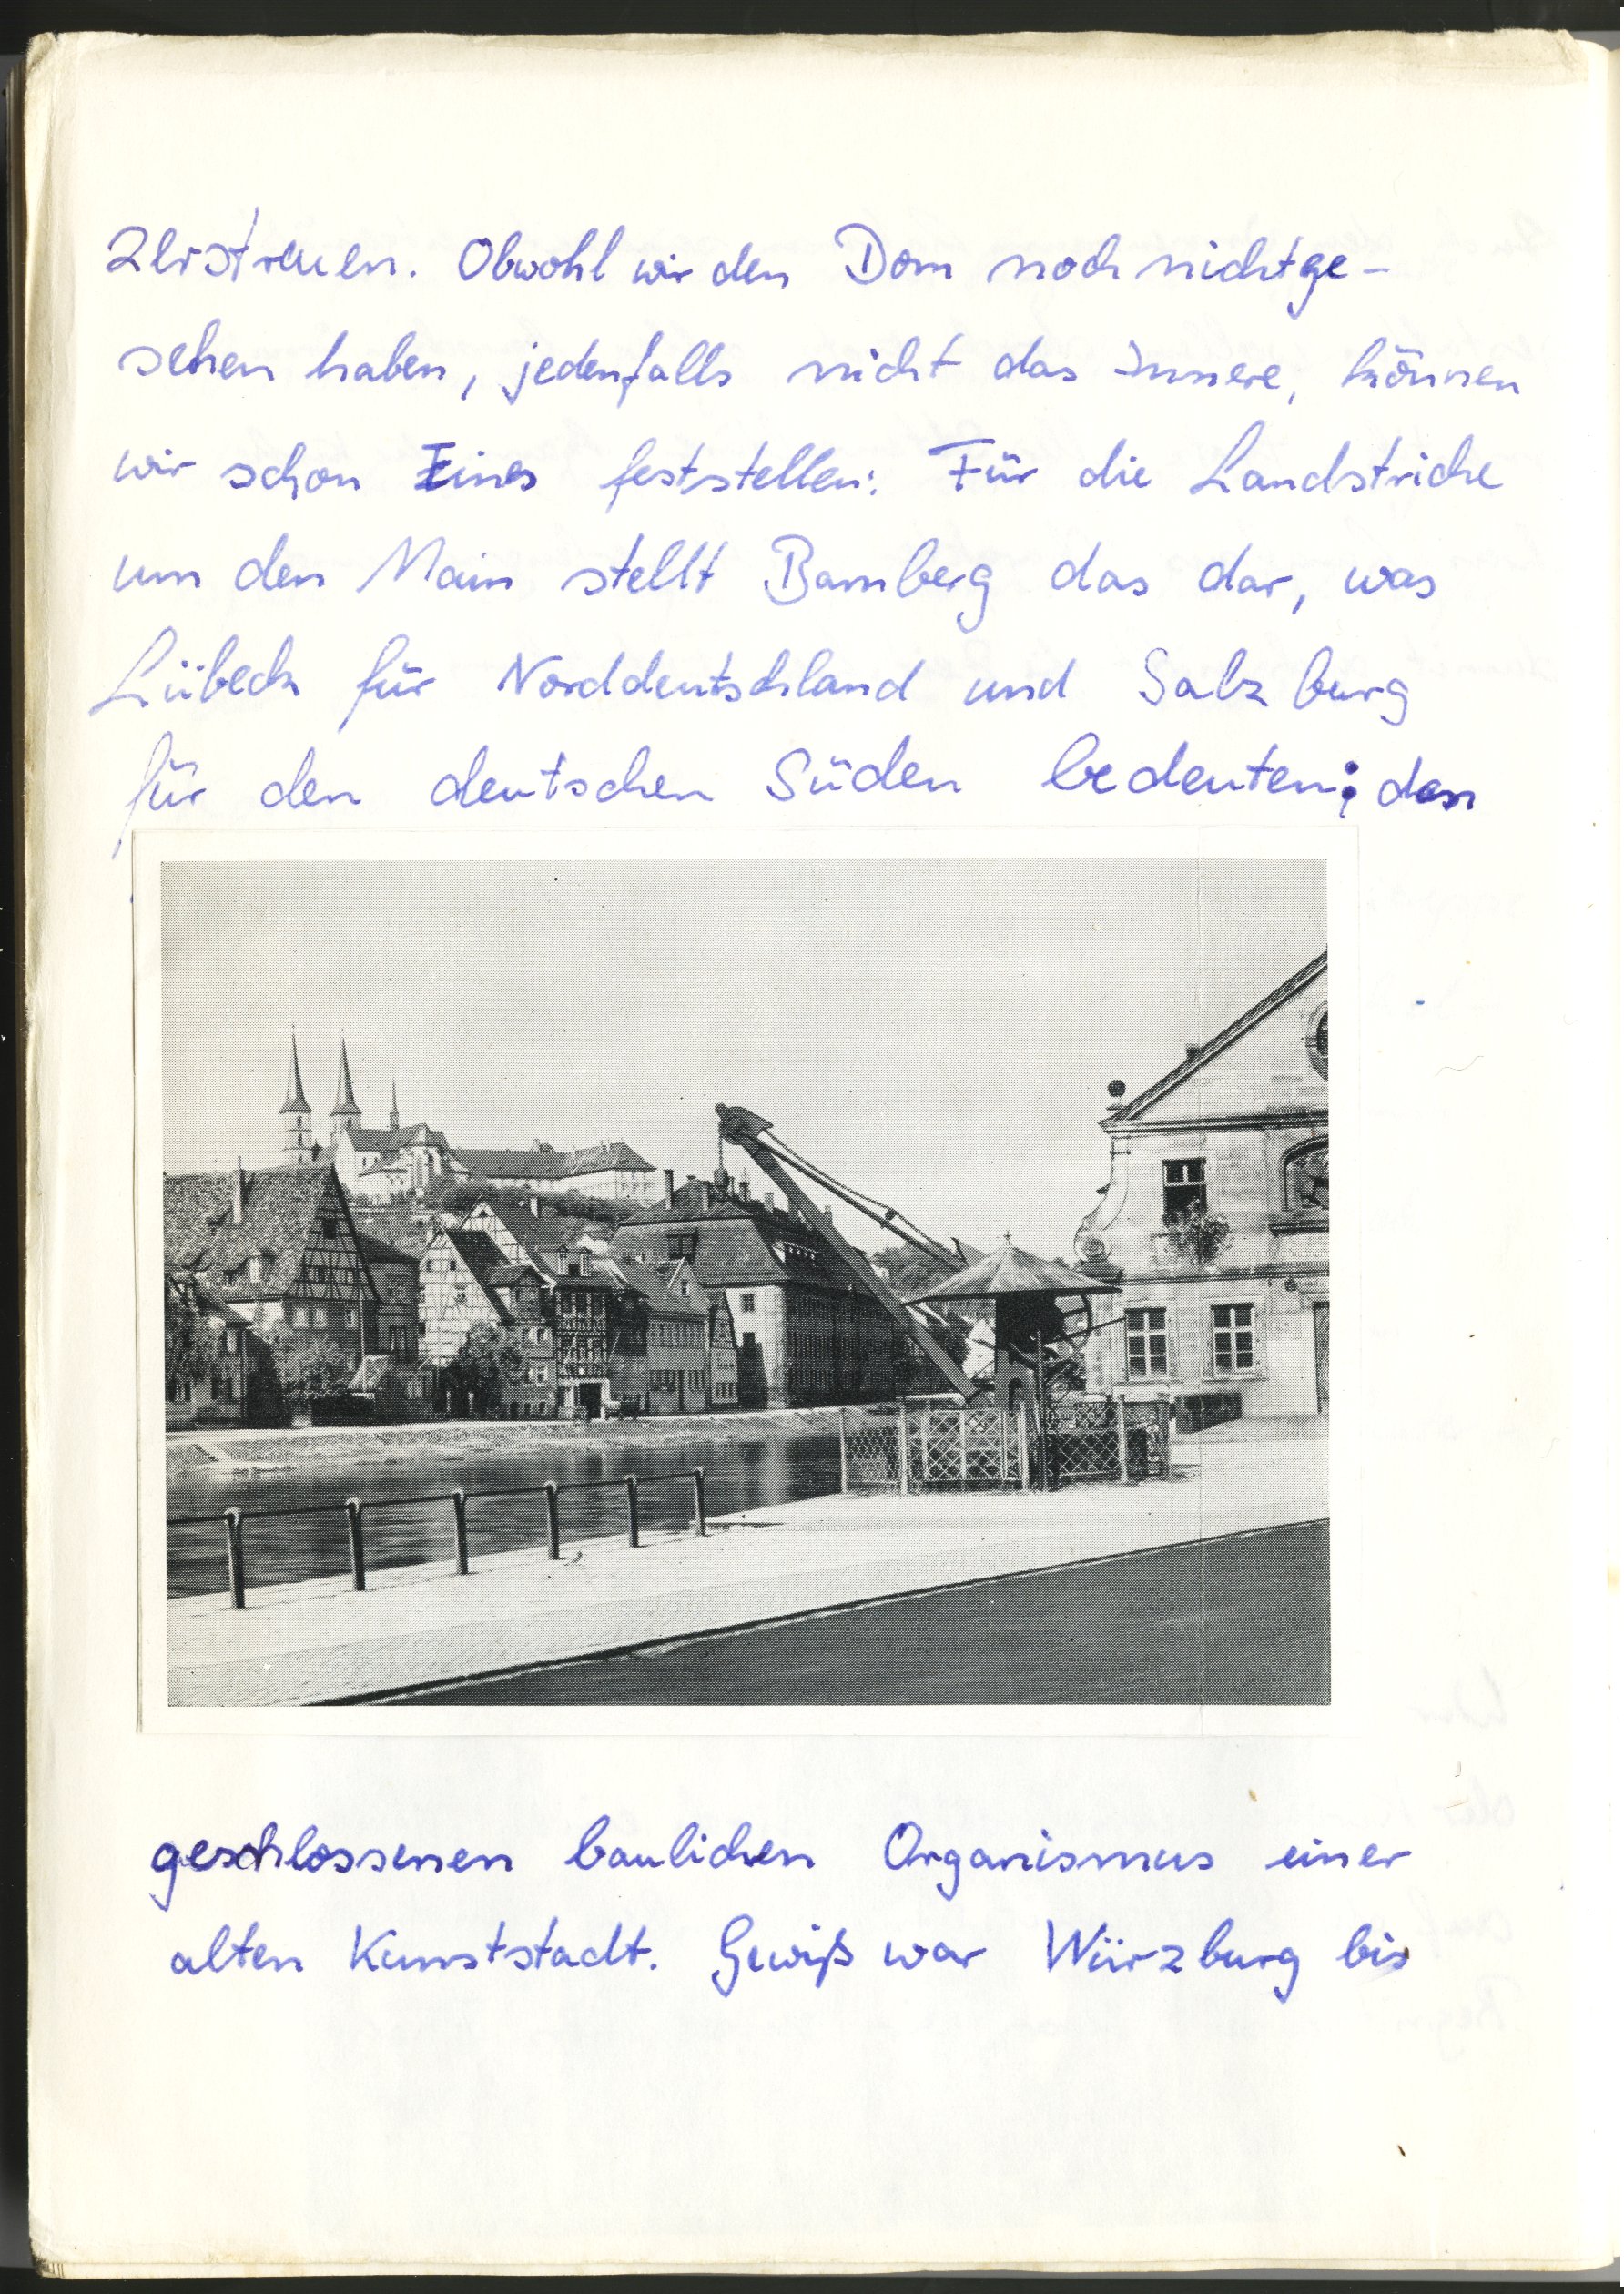 zerstreuen. Obwohl wir den Dom noch nicht ge-
sehen haben, jedenfalls nicht das Innere, können
wir schon Eines feststellen: Für die Landstriche
um den Main stellt Bamberg das dar, was
Lübeck für Norddeutschland und Salzburg
für den deutschen Süden bedeuten: den
geschlossenen baulichen Organismus einer
alten Kunststadt. Gewiß war Würzburg bis